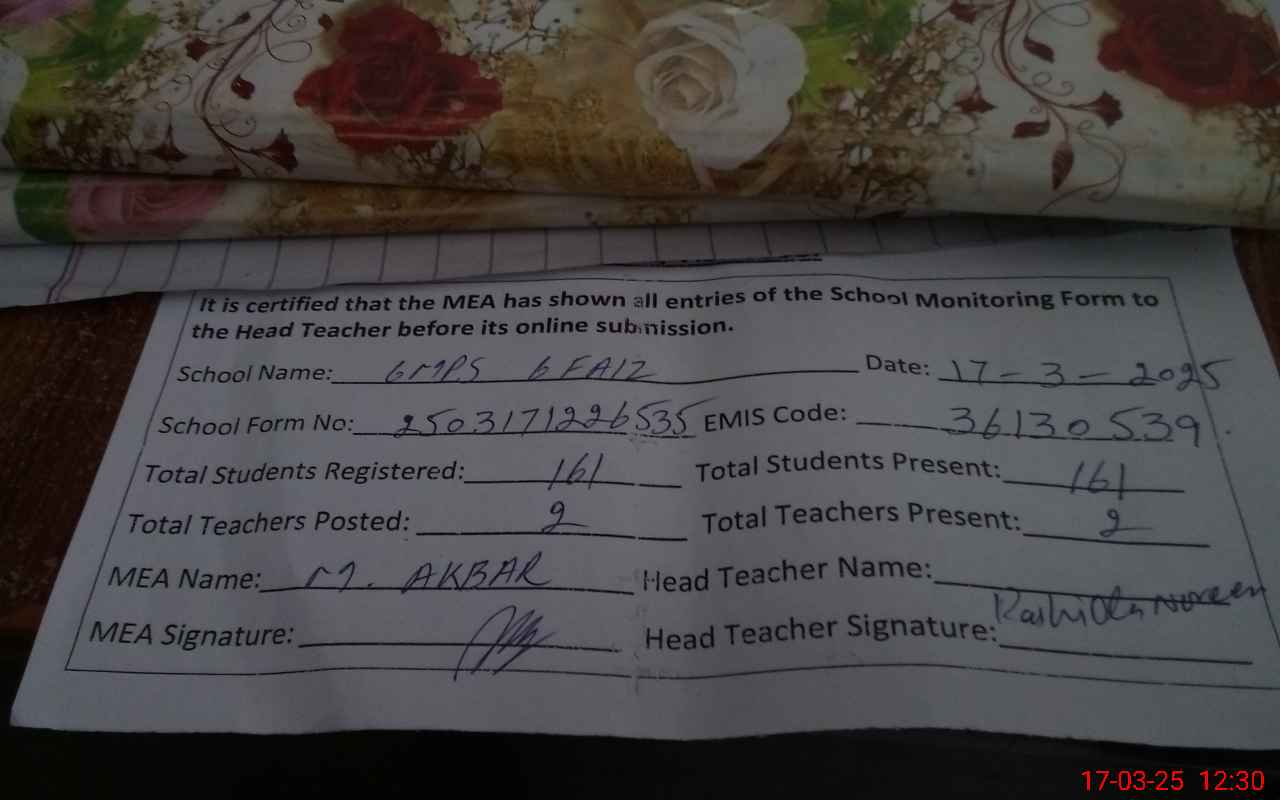 It is certified that the MEA has shown all entries of the School Monitoring Form to
the Head Teacher before its online submission.
School Name: GMPS 6 FAIZ Date: 17-3-2025
School Form No: 2503171226535 EMIS Code: 36130539
Total Students Registered: 161 Total Students Present: 161
Total Teachers Posted: 2 Total Teachers Present: 2
MEA Name: M. AKBAR Head Teacher Name:
Rashida Noreen
MEA Signature: Head Teacher Signature:
17-03-25 12:30